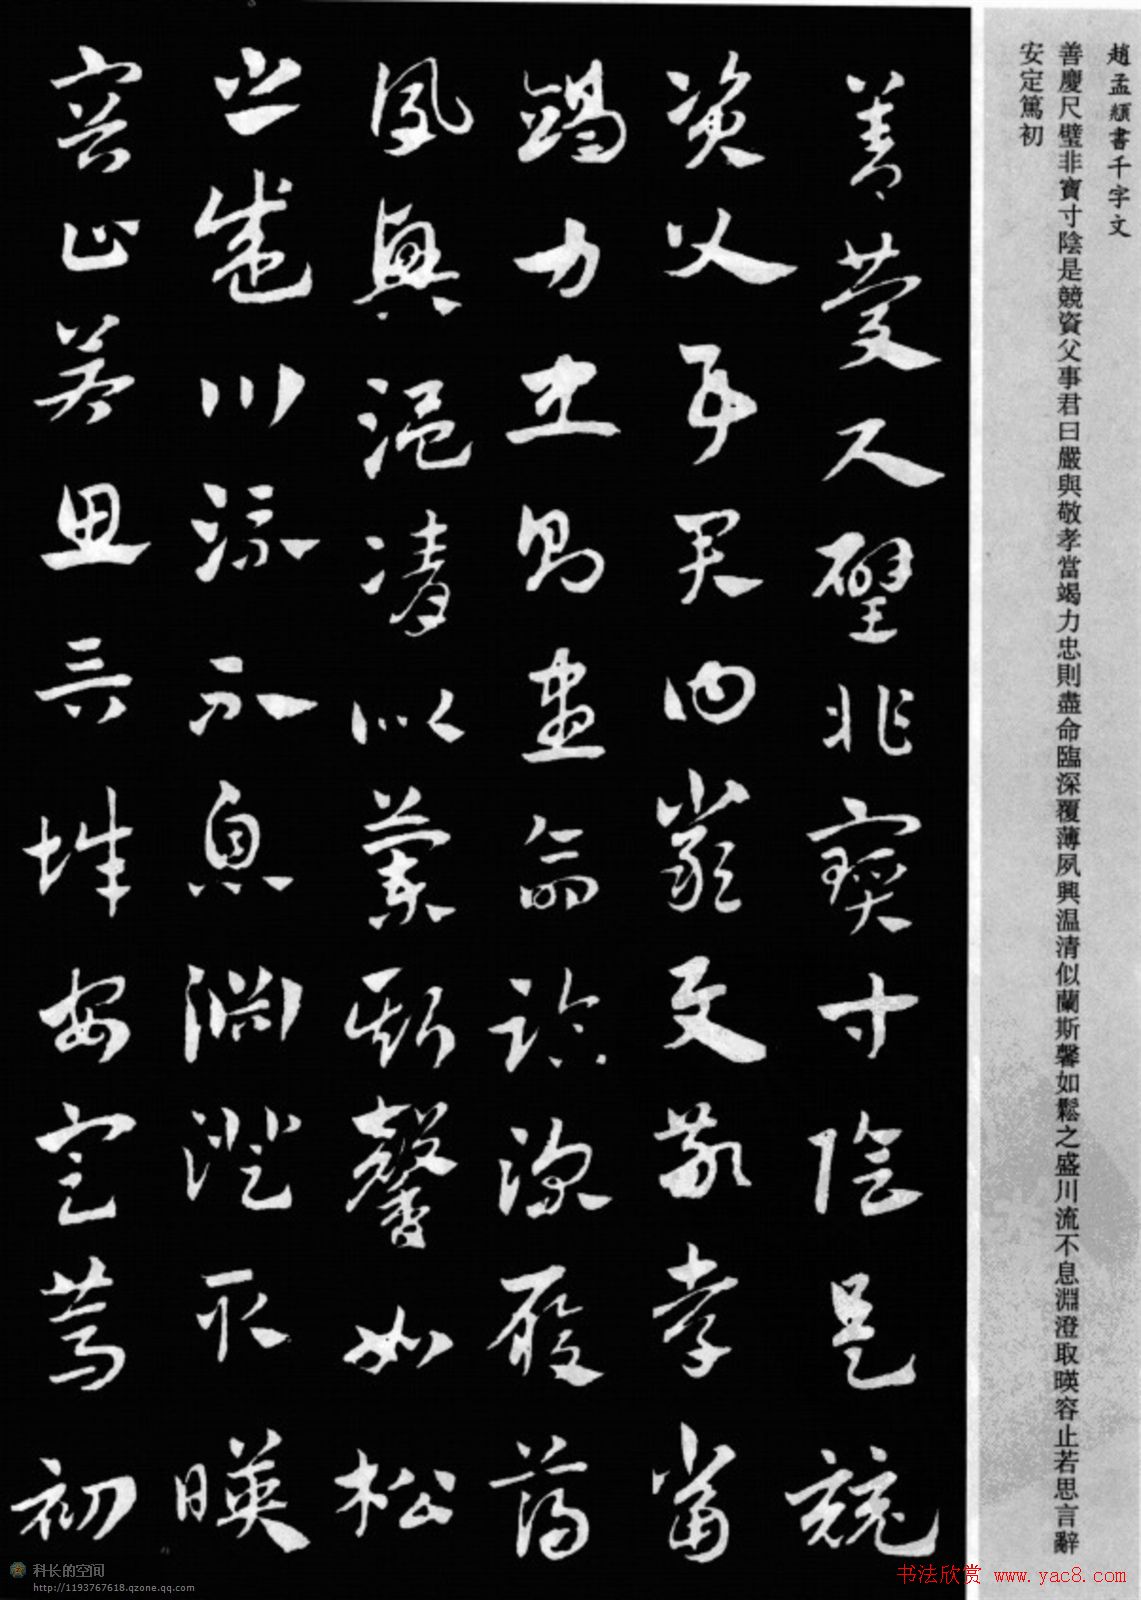 趙孟頫書千字文
善慶尺璧非寶寸陰是競資父事君曰嚴與敬孝當竭力忠則盡命臨深覆薄夙興温清似蘭斯馨如鬆之盛川流不息淵澄取暎容止若思言辭
安定篤初
善慶尺璧非寶寸陰是競
資父事君曰嚴與敬孝當
竭力忠則盡命臨深履薄
夙興温清似蘭斯馨如松
之盛川流不息淵澄取暎
容止若思言辭安定篤初
科长的空间
http://1193767618.qzone.qq.com
书法欣赏 www.yac8.com